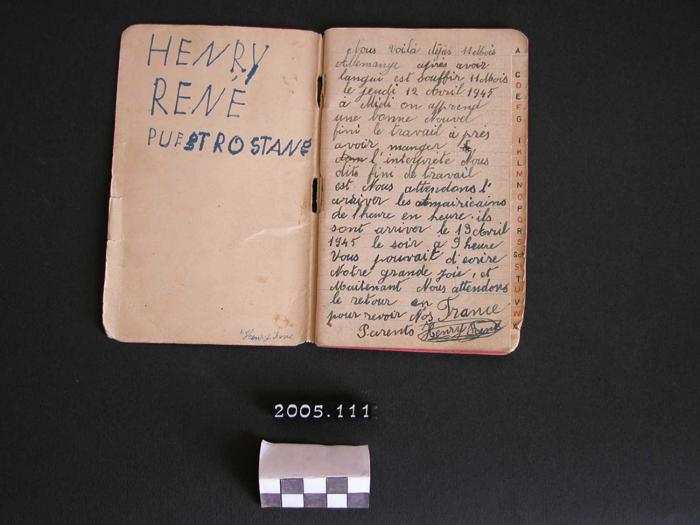 HENRY
RENÉ
PUESTROSTANS
Henry René
Nous voilà déjas 11 Mois
Allemange après avoir
langui est souffir 11 Mois
le jeudi 12 Avril 1945
à Midi on apprend
une bonne Nouvel
fini le travail à près
avoir manger
l'interprète Nous
dits fini de travail
est Nous attendons l'
arriver les amairicains
de l'heure en heure. ils
sont arriver le 13 Avril
1945 le soir à 9 heure
Vous pouvait d'ecrire
Notre grande joie, et
Maitenant Nous attendons
le retour en France
pour revoir Nos
Parents Henry René
A
C
D
E
F
G
I
K
L
M
N
O
P
Q
R
S
T
U
V
W
X
2005.111